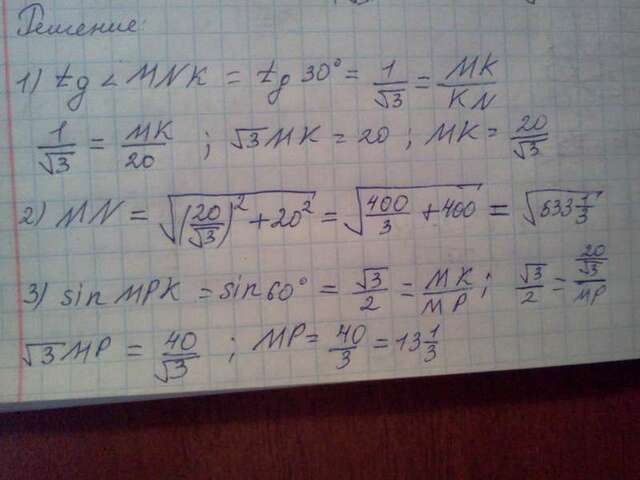 Решение:
1) tg ∠ MNK = tg 30° = 1/√3 = MK/KN
1/√3 = MK/20 ; √3 MK = 20 ; MK = 20/√3
2) MN = √((20/√3)² + 20²) = √(400/3 + 400) = √(533 1/3)
3) sin MPK = sin 60° = √3/2 = MK/MP ; √3/2 = (20/√3)/MP
√3 MP = 40/√3 ; MP = 40/3 = 13 1/3